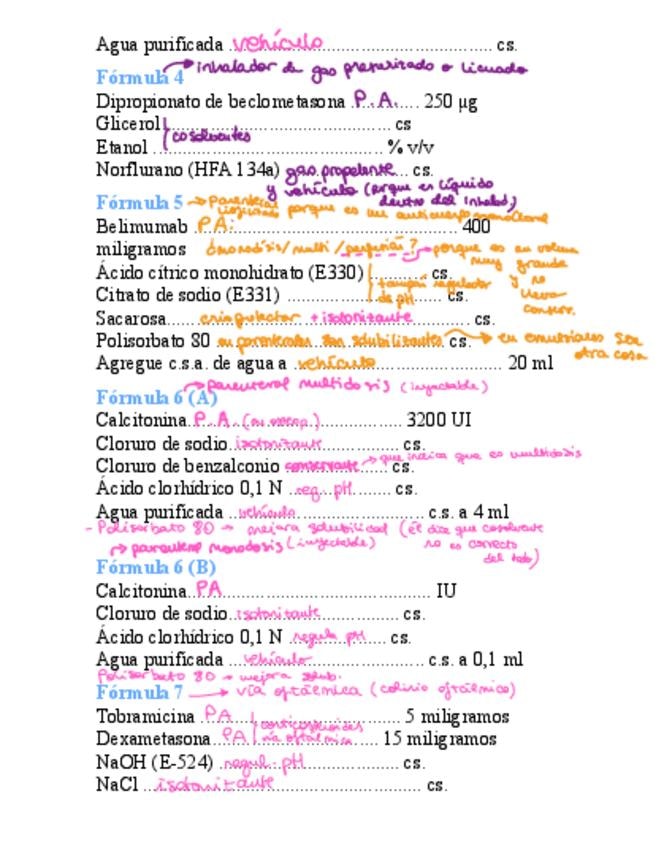 Agua purificada ..vehículo.......................... cs.
Fórmula 4 → inhalador de gas presurizado o licuado
Dipropionato de beclometasona .P.A..... 250 µg
Glicerol.......................................... cs
cosolventes
Etanol .......................................... % v/v
Norflurano (HFA 134a) gas propelente... cs.
y vehículo (porque es líquido
dentro del inhalad)
Fórmula 5 → Parenteral
porque es un anticuerpo monoclonal
Belimumab .PA:...................................... 400
miligramos monodosis/multi/perfusión? → porque es un volumen
muy grande
y no
lleva
conserv.
Ácido cítrico monohidrato (E330) ........... cs.
tampón regulador
de pH
Citrato de sodio (E331) ........................ cs.
Sacarosa......crioprotector + isotonizante............ cs.
Polisorbato 80 en parenterales son solubilizantes cs. → en emulsiones son
otra cosa
Agregue c.s.a. de agua a .vehículo........................ 20 ml
→ parenteral multidosis (inyectable)
Fórmula 6 (A)
Calcitonina..P.A. (en microg.).................. 3200 UI
Cloruro de sodio..isotonizante................ cs.
Cloruro de benzalconio conservante...... cs. → que indica que es multidosis
Ácido clorhídrico 0,1 N ..reg...pH........ cs.
Agua purificada ...vehículo........................ c.s. a 4 ml
- Polisorbato 80 → mejora solubilidad (él dice que cosolvente
no es correcto
del todo)
→ parenteral monodosis (inyectable)
Fórmula 6 (B)
Calcitonina..PA.......................................... IU
Cloruro de sodio..isotonizante................ cs.
Ácido clorhídrico 0,1 N ..regula pH.... cs.
Agua purificada ...vehículo........................ c.s. a 0,1 ml
Polisorbato 80 → mejora solub.
Fórmula 7 → vía oftálmica (colirio oftálmico)
Tobramicina ..PA............................ 5 miligramos
corticosteroides
vía oftálmica
Dexametasona..PA.................... 15 miligramos
NaOH (E-524) ..regul. pH................ cs.
NaCl ...isotonizante............................ cs.